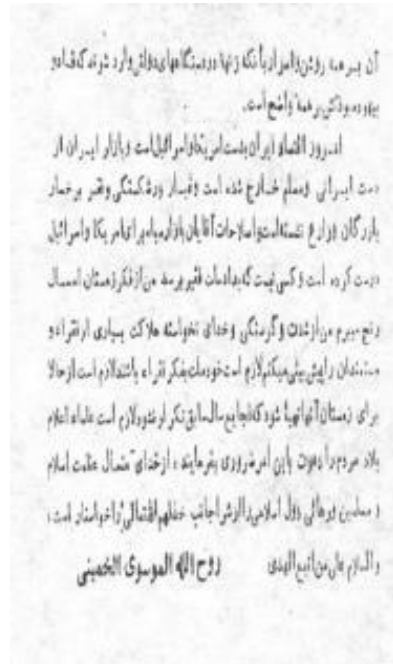 آن بر همه روشن و اصرار بآنکه زنها در دستگاههای دولتی وارد شوند که فساد و
بیهوده بودنش بر همه واضح است.
امروز اقتصاد ایران بدست امریکا و اسرائیل است و بازار ایران از
دست ایرانی و مسلم خارج شده است و غبار ورشکستگی و فقر برخسار
بازرگان و زارع نشسته است و اصلاحات آقایان بازار سیاه برای امریکا و اسرائیل
درست کرده است و کسی نیست که بداد ملت فقیر برسد من از فکر زمستان امسال
رنج میبرم من از شدت و گرسنگی و خدای نخواسته هلاکت بسیاری از فقراء و
مستمندان را پیش بینی میکنم لازم است خود ملت بفکر فقراء باشد لازم است از حالا
برای زمستان آنها تهیهٔ شود که فجایع سال سابق تکرار نشود لازم است علماء اعلام
بلاد مردم را دعوت باین امر ضروری بفرمایند، از خدای متعال عظمت اسلام
و مسلمین و رهائی دول اسلامی را از شر اجانب خذلهم الله تعالی را خواستار است،
والسلام علی من اتبع الهدی روح الله الموسوی الخمینی